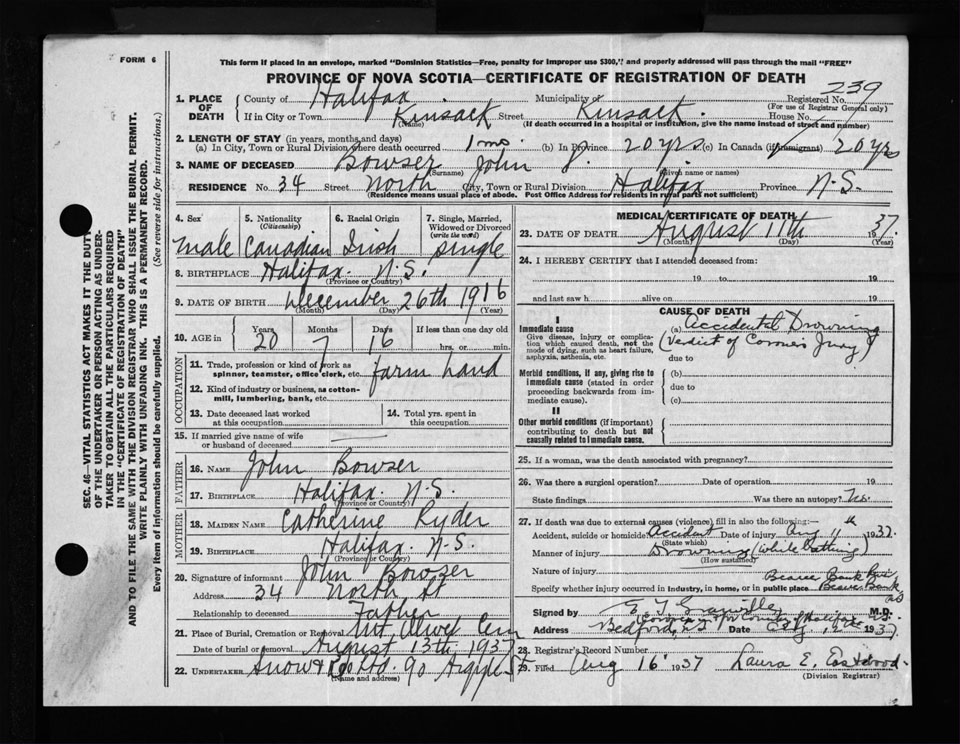 FORM 6
This form if placed in an envelope, marked "Dominion Statistics—Free, penalty for improper use $300," and properly addressed will pass through the mail "FREE"
PROVINCE OF NOVA SCOTIA—CERTIFICATE OF REGISTRATION OF DEATH
239
1. PLACE OF DEATH { County of Halifax Municipality of Kinsack Registered No.
(For use of Registrar General only)
If in City or Town Kinsack Street House No.
(Name) (If death occurred in a hospital or institution, give the name instead of street and number)
2. LENGTH OF STAY (in years, months and days)
(a) In City, Town or Rural Division where death occurred 1 mo. (b) In Province 20 yrs (c) In Canada (if immigrant) 20 yrs
3. NAME OF DECEASED Bowser John J.
(Surname) (Given name or names)
RESIDENCE No. 34 Street North City, Town or Rural Division Halifax Province N.S.
(Residence means usual place of abode. Post Office Address for residents in rural parts not sufficient)
4. Sex 5. Nationality (Citizenship) 6. Racial Origin 7. Single, Married, Widowed or Divorced (write the word)
male Canadian Irish single
8. BIRTHPLACE Halifax. N.S.
(Province or Country)
9. DATE OF BIRTH December 26th 1916
(Month) (Day) (Year)
10. AGE in Years Months Days If less than one day old
20 7 16 hrs. or min.
OCCUPATION
11. Trade, profession or kind of work as spinner, teamster, office clerk, etc. farm hand
12. Kind of industry or business, as cotton-mill, lumbering, bank, etc.
13. Date deceased last worked at this occupation
14. Total yrs. spent in this occupation
15. If married give name of wife or husband of deceased
FATHER
16. NAME John Bowser
17. BIRTHPLACE Halifax. N.S.
(Province or Country)
MOTHER
18. MAIDEN NAME Catherine Ryder
19. BIRTHPLACE Halifax. N.S.
(Province or Country)
20. Signature of informant John Bowser
Address 34 North St
Relationship to deceased Father
21. Place of Burial, Cremation or Removal Mt. Olivet Cem
Date of burial or removal August 13th, 1937
22. UNDERTAKER Snow & Co Ltd. 90 Argyle St
(Name and address)
MEDICAL CERTIFICATE OF DEATH
23. DATE OF DEATH August 11th 1937
(Month) (Day) (Year)
24. I HEREBY CERTIFY that I attended deceased from:
19 to 19
and last saw h alive on 19
CAUSE OF DEATH
I
Immediate cause
Give disease, injury or complication which caused death, not the mode of dying, such as heart failure, asphyxia, asthenia, etc.
(a) Accidental Drowning
(Verdict of Coroner's Jury)
due to
Morbid conditions, if any, giving rise to immediate cause (stated in order proceeding backwards from immediate cause).
(b)
due to
(c)
II
Other morbid conditions (if important) contributing to death but not causally related to immediate cause.
25. If a woman, was the death associated with pregnancy?
26. Was there a surgical operation? Date of operation 19
State findings Was there an autopsy? No.
27. If death was due to external causes (violence) fill in also the following:—
Accident, suicide or homicide? Accident Date of injury Aug 11th 1937
(State which)
Manner of injury Drowning (while bathing)
(How sustained)
Nature of injury
Specify whether injury occurred in industry, in home, or in public place Beaver Bank
Signed by M.D.
Address Bedford, N.S. Date 1937
28. Registrar's Record Number
29. Filed Aug 16 1937 Laura E.
(Division Registrar)
SEC. 46—VITAL STATISTICS ACT MAKES IT THE DUTY
OF THE UNDERTAKER OR PERSON ACTING AS UNDER-
TAKER TO OBTAIN ALL THE PARTICULARS REQUIRED
IN THE "CERTIFICATE OF REGISTRATION OF DEATH"
AND TO FILE THE SAME WITH THE DIVISION REGISTRAR WHO SHALL ISSUE THE BURIAL PERMIT.
WRITE PLAINLY WITH UNFADING INK. THIS IS A PERMANENT RECORD.
Every item of information should be carefully supplied. (See reverse side for instructions.)